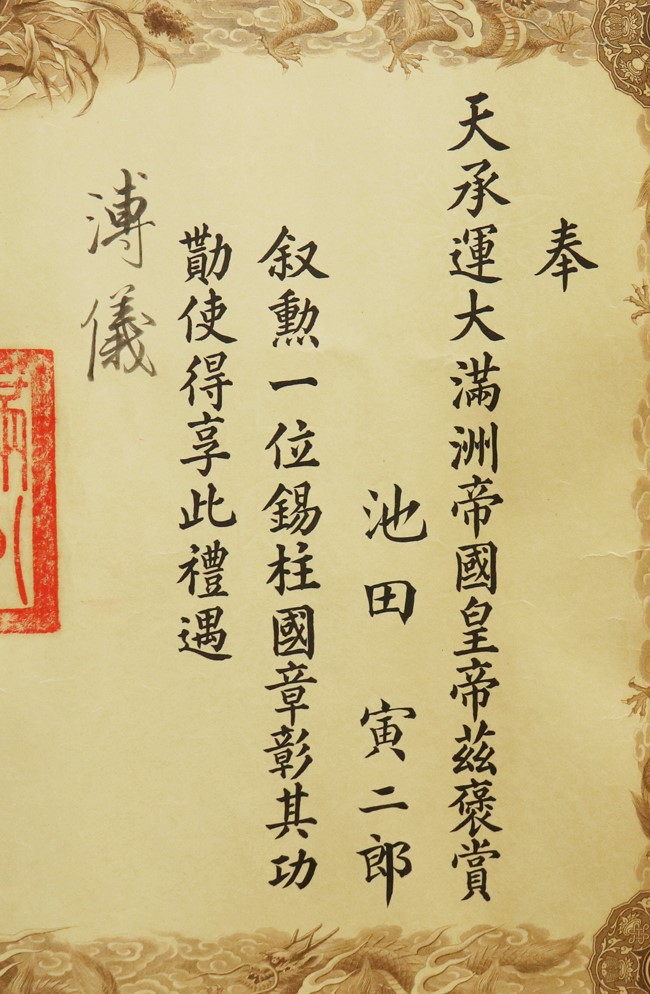 奉
天承運大滿洲帝國皇帝茲褒賞
池田寅二郎
叙勳一位錫柱國章彰其功
勩使得享此禮遇
溥儀